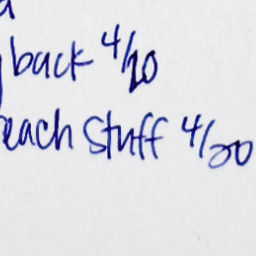 back 4/20
each stuff 4/20